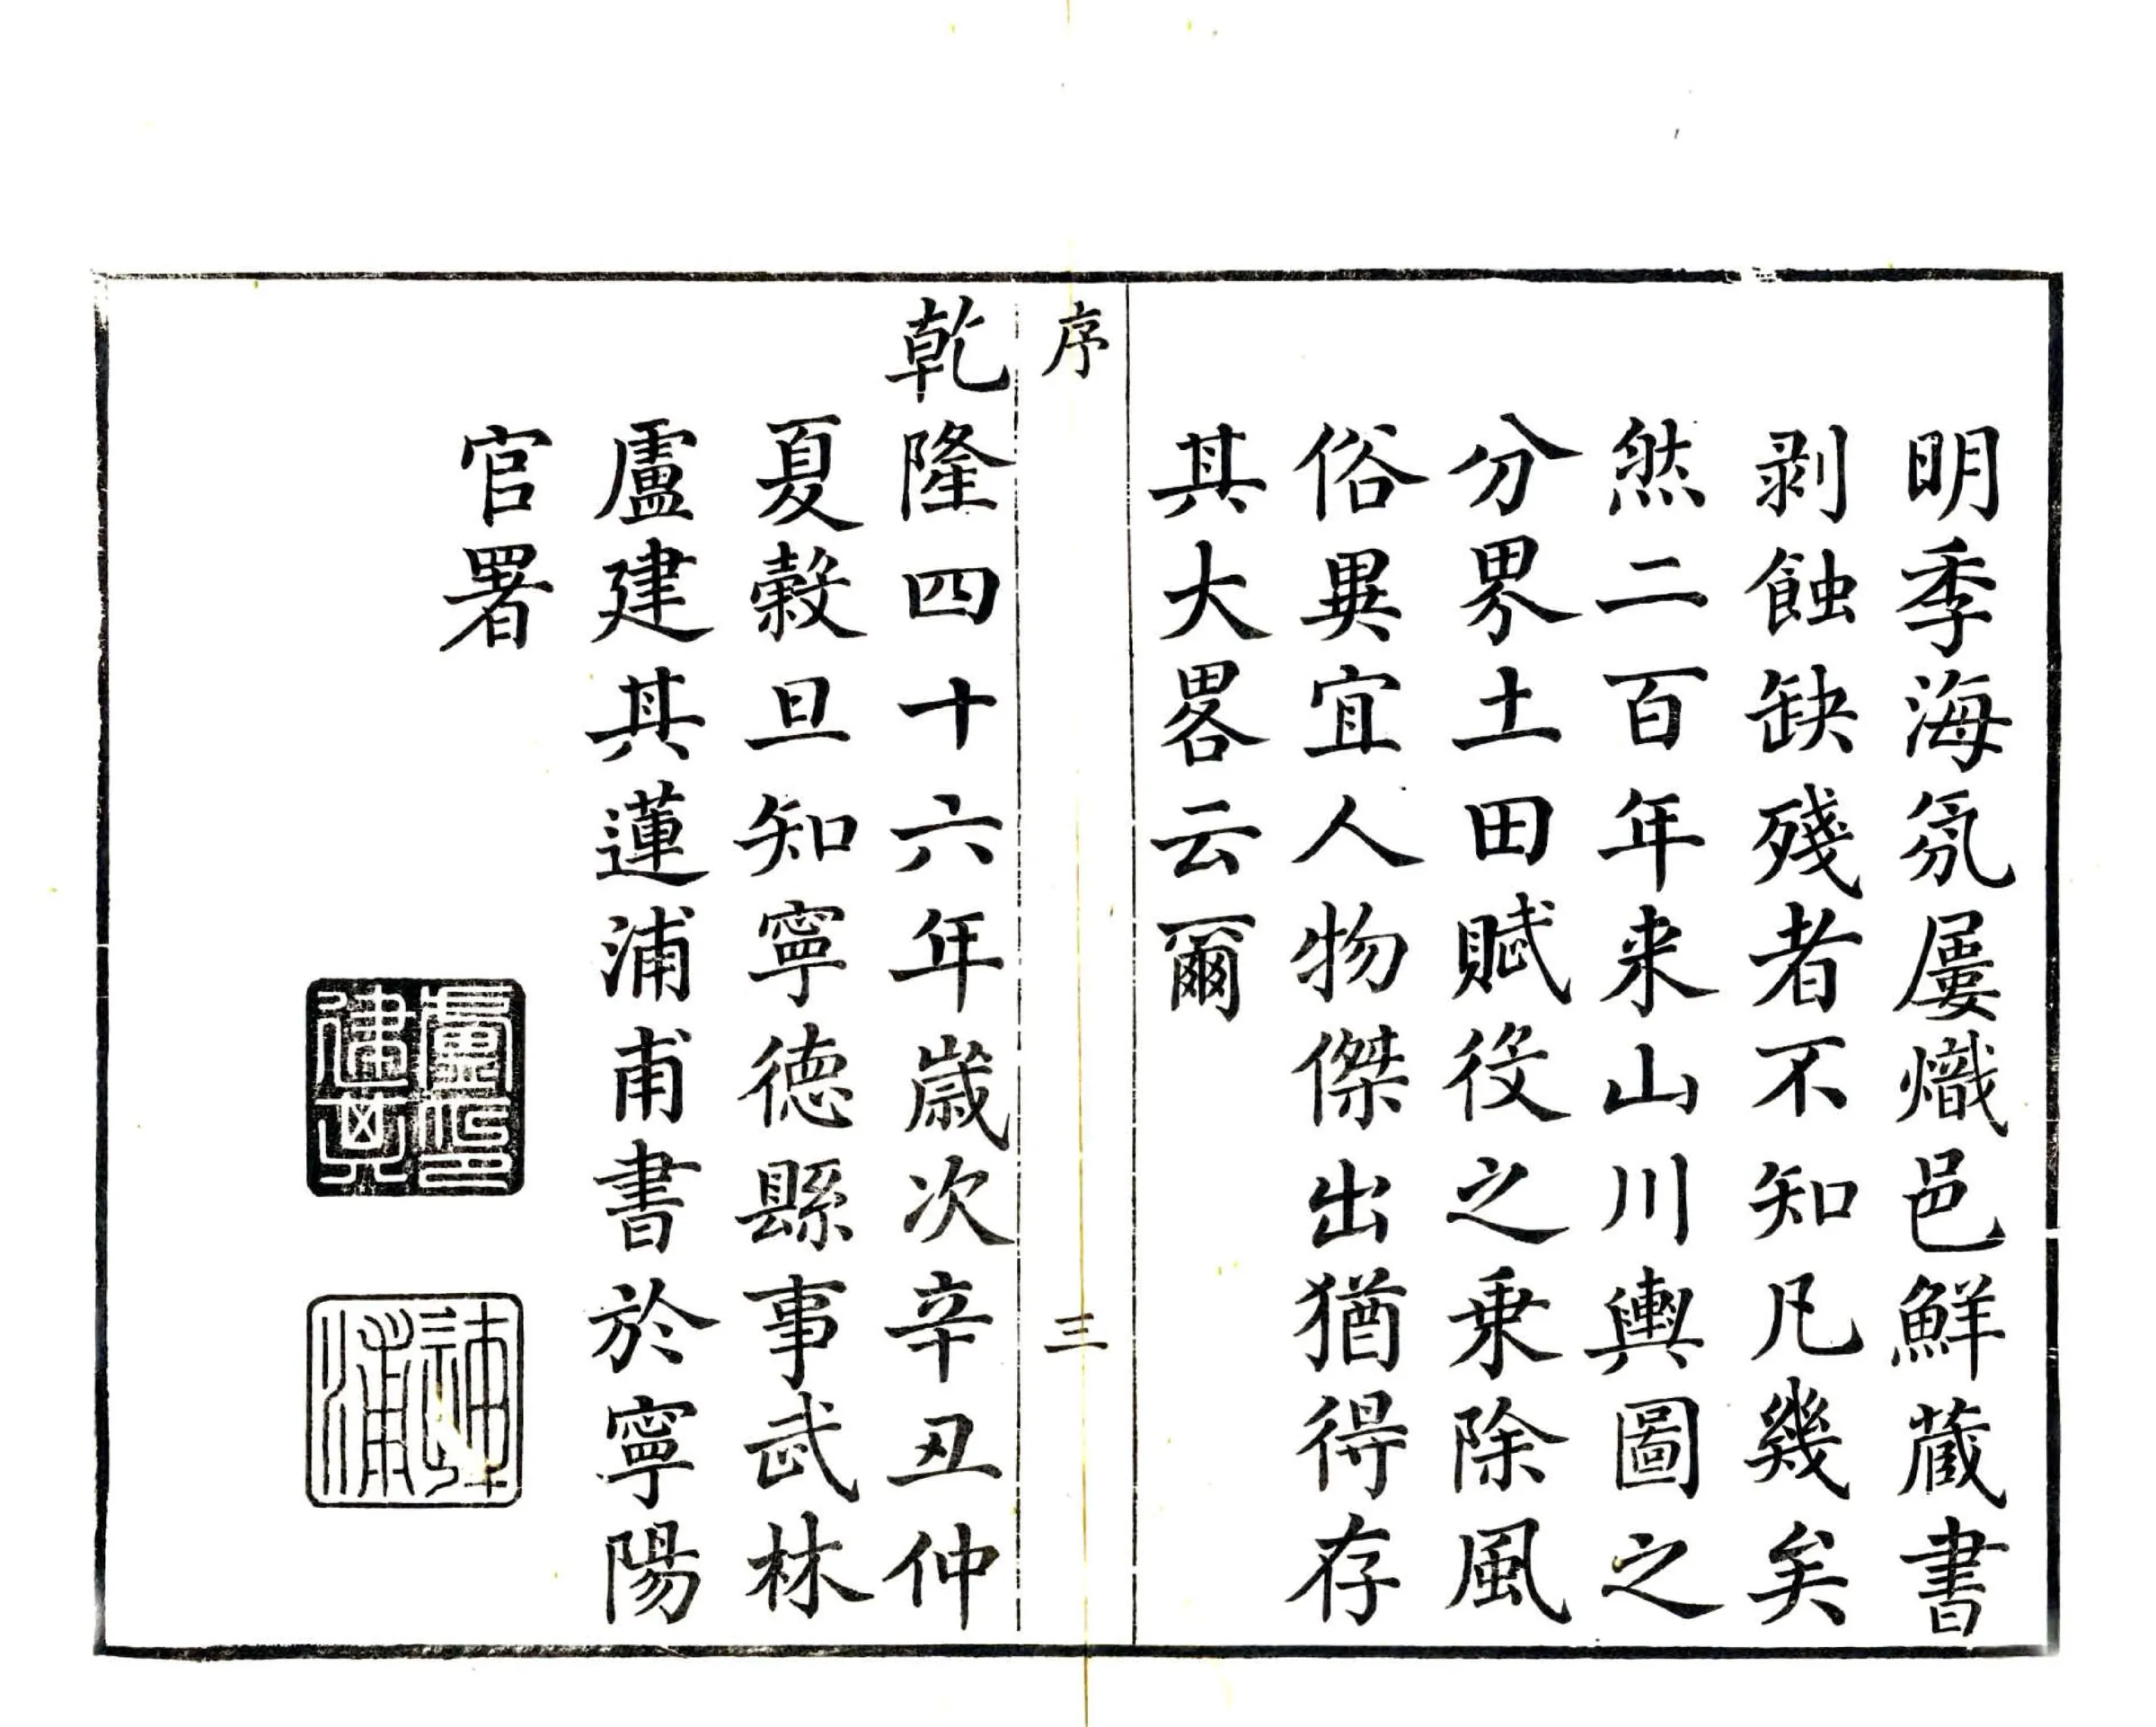 明季海氛屢熾邑鮮蔵書
剥蝕缺殘者不知凡幾矣
然二百年来山川輿圖之
分界土田賦役之乗除風
俗異宜人物傑出猶得存
其大畧云爾
序
三
乾隆四十六年歳次辛丑仲
夏榖旦知寧德縣事武林
盧建其蓮浦甫書於寧陽
官署
盧印
建其
浦